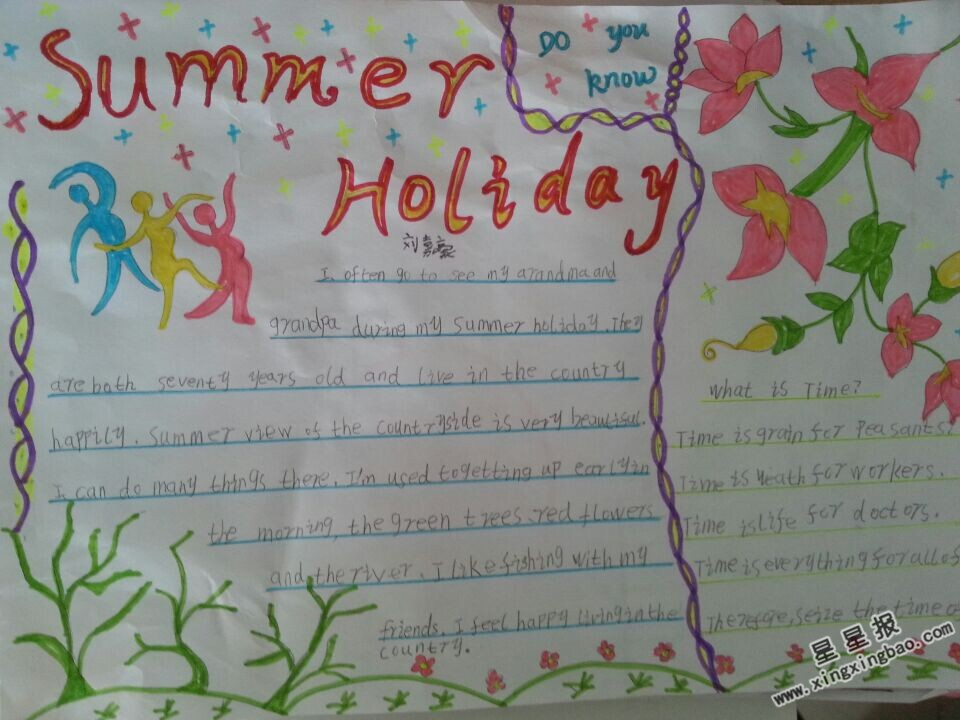 Summer
Holiday
Do you
know
I often go to see my grandma and
grandpa during my summer holiday. They
are both seventy years old and live in the country
happily. Summer view of the countryside is very beautiful.
I can do many things there. I'm used to getting up early in
the morning, the green trees. red flowers
and the river. I like fishing with my
friends. I feel happy living in the
country.
What is Time?
Time is grain for Peasants.
Time is Weath for workers.
Time is life for doctors.
Time is everything for all of
Therefore, seize the time
星星报
www.xingxingbao.com